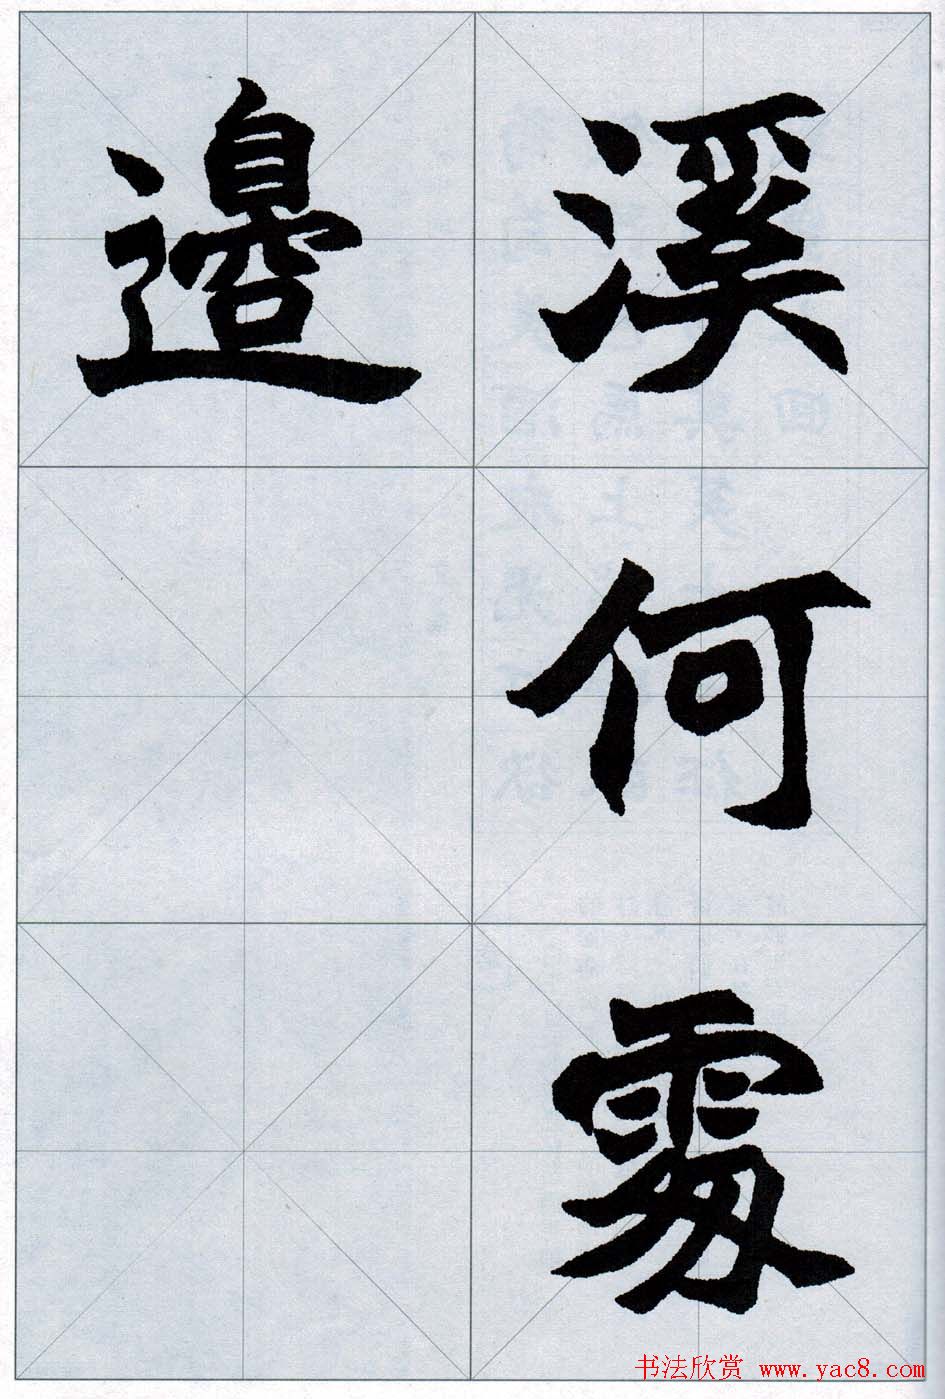 溪何處
邊
书法欣赏 www.yac8.com